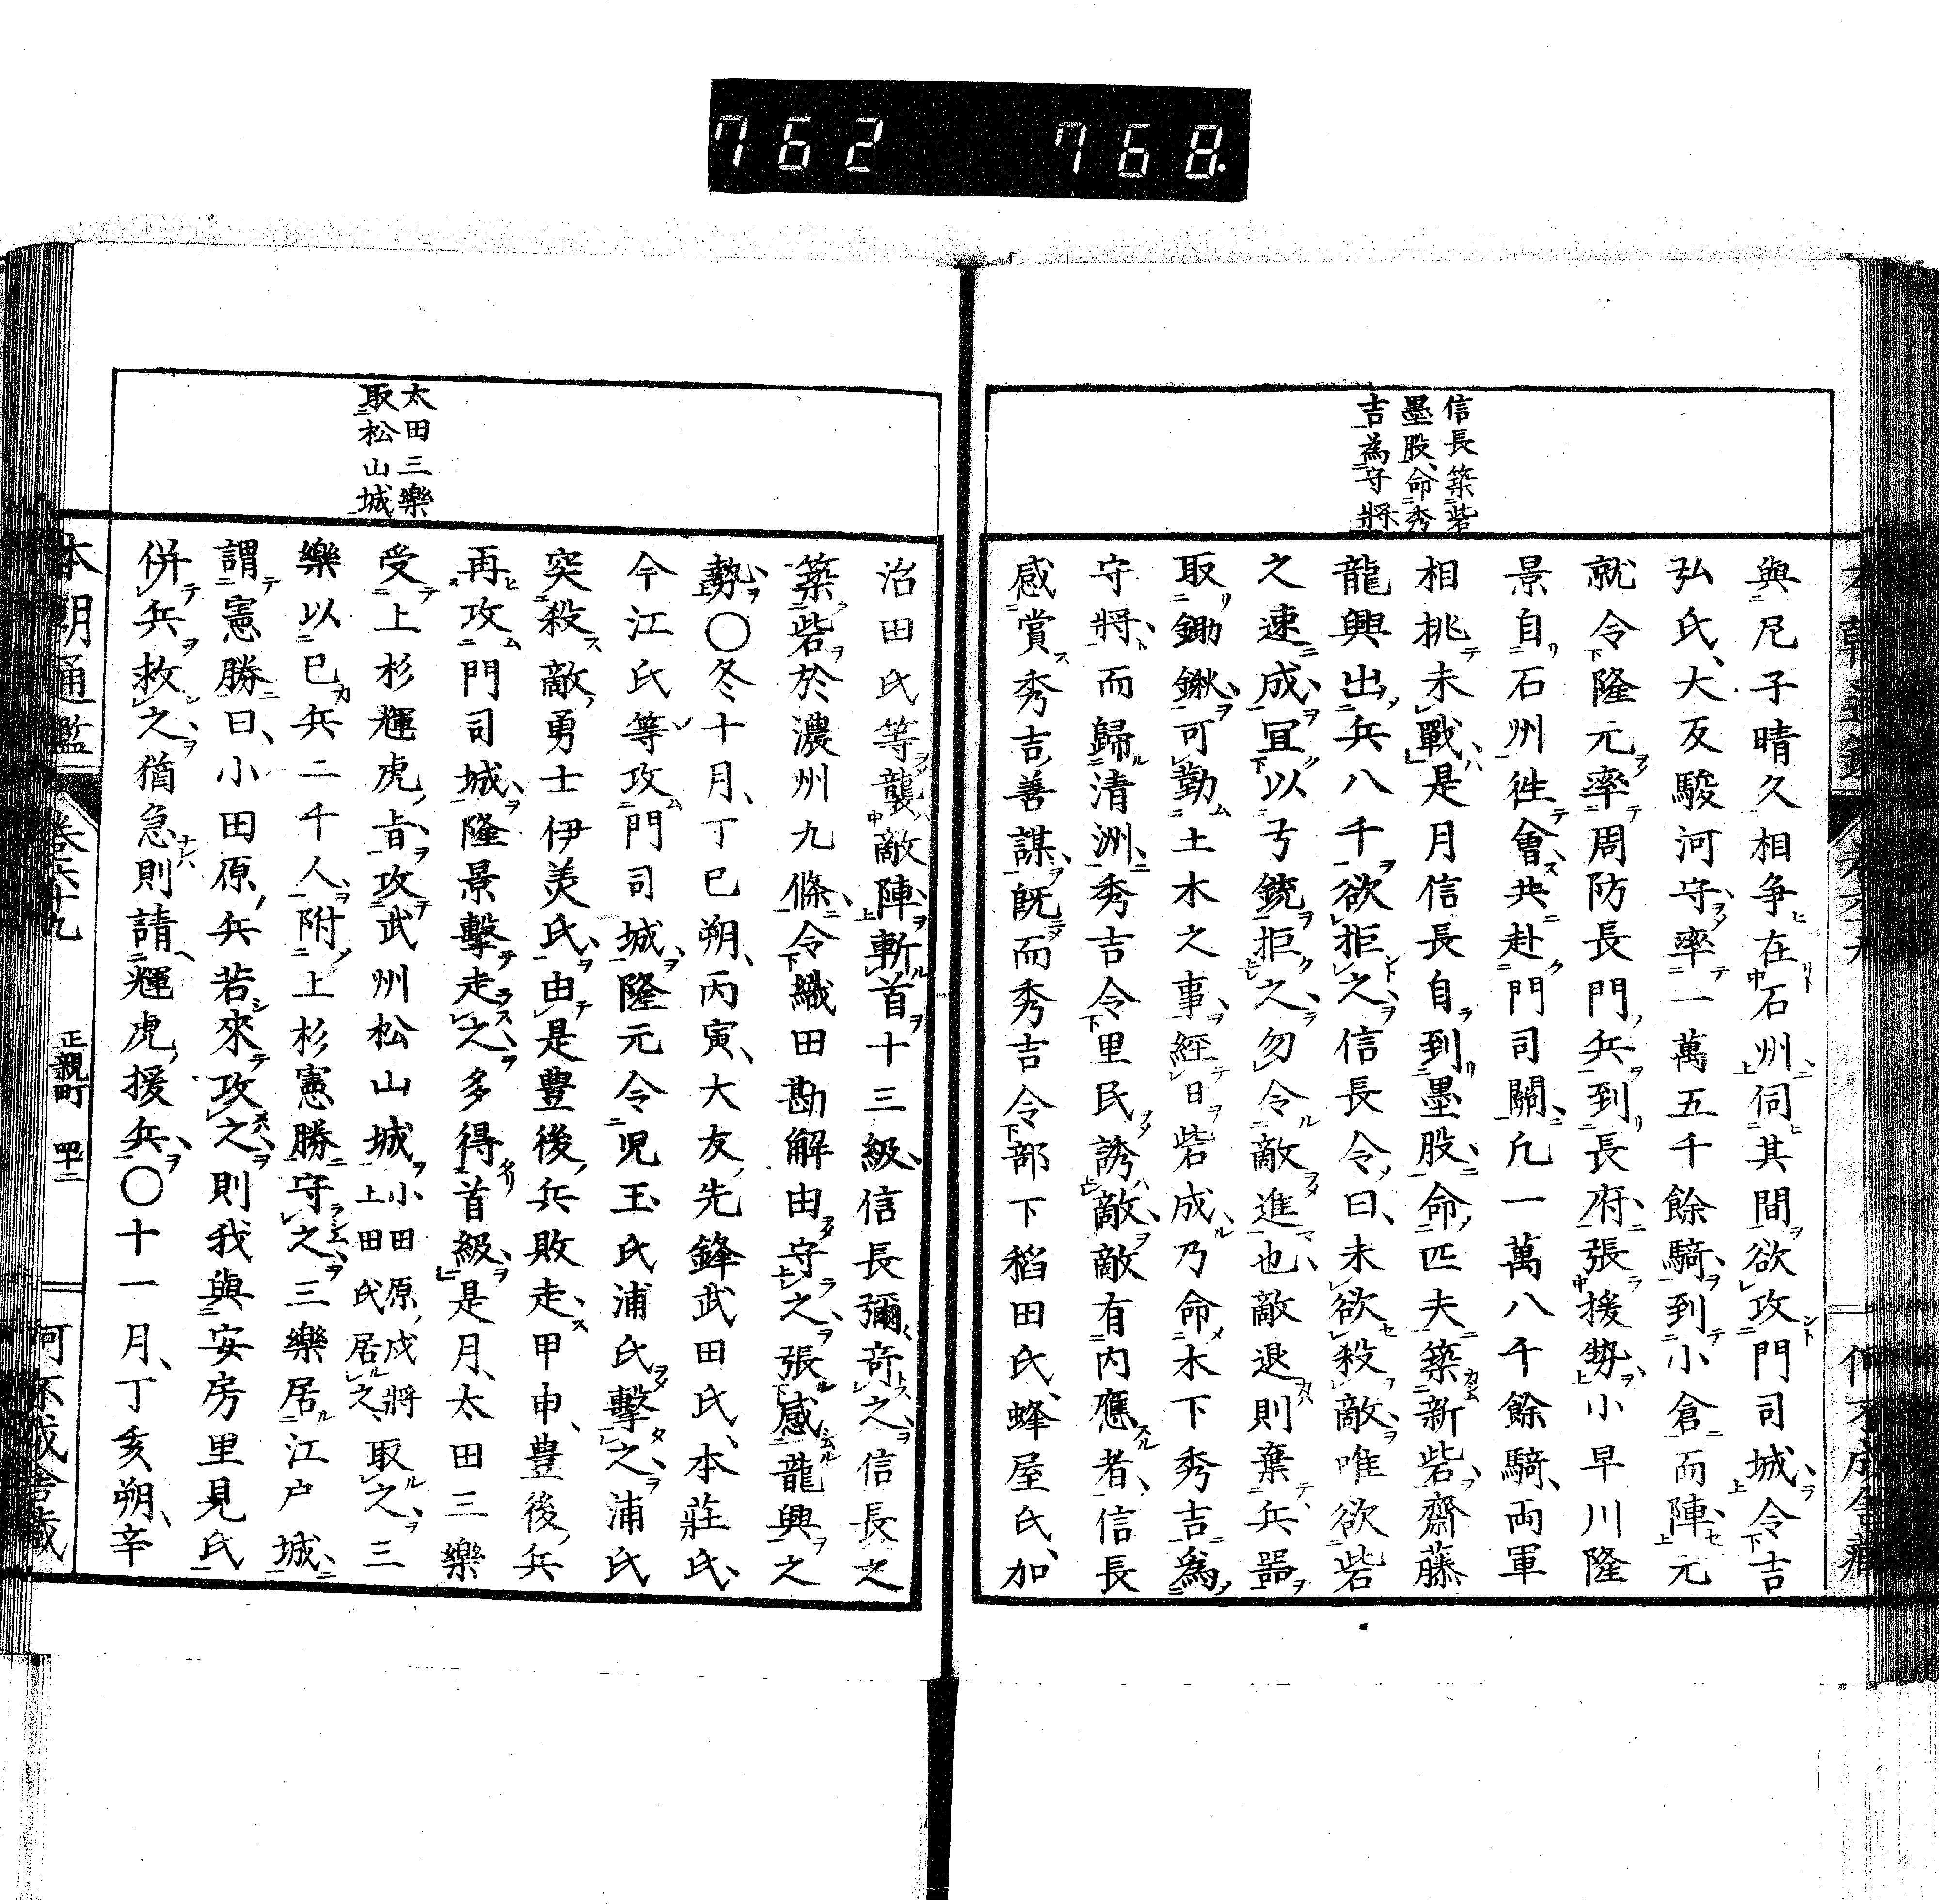 762 768.
信長築砦
墨股、命秀
吉為守將
與尼子晴久相争在石州伺其間欲攻門司城、令吉
弘氏、大友駿河守率一萬五千餘騎到小倉而陣、元
就令隆元率周防長門兵到長府、張援勢、小早川隆
景自石州徃會共赴門司關、凡一萬八千餘騎、両軍
相挑未戰、是月信長自到墨股、命匹夫築新砦、齋藤
龍興出兵八千欲拒之、信長令曰、未欲殺敵、唯欲砦
之速成、冝以弓銃拒之、勿令敵進也、敵退則棄兵噐
取鋤鍬、可勤土木之事、經日砦成、乃命木下秀吉為
守將、而歸清洲、秀吉令里民誘敵、敵有内應者、信長
感賞秀吉善謀、既而秀吉令部下稻田氏、蜂屋氏、加
治田氏等襲敵陣、斬首十三級、信長彌竒之、信長之
築砦於濃州九條、令織田勘解由守之、張威龍興之
勢、〇冬十月、丁巳朔、丙寅、大友先鋒武田氏、本莊氏、
今江氏等攻門司城、隆元令児玉氏浦氏擊之、浦氏
突殺敵勇士伊美氏、由是豊後兵敗走、甲申、豊後兵
再攻門司城、隆景擊走之、多得首級、是月、太田三樂
受上杉輝虎旨、攻武州松山城、小田原戍將
上田氏居之、取之、三
樂以己兵二千人、附上杉憲勝守之、三樂居江户城、
謂憲勝曰、小田原兵若來攻之、則我與安房里見氏
併兵救之、猶急則請輝虎援兵、〇十一月、丁亥朔、辛
太田三樂
取松山城
本朝通鑑
卷六十九
正親町 四十二